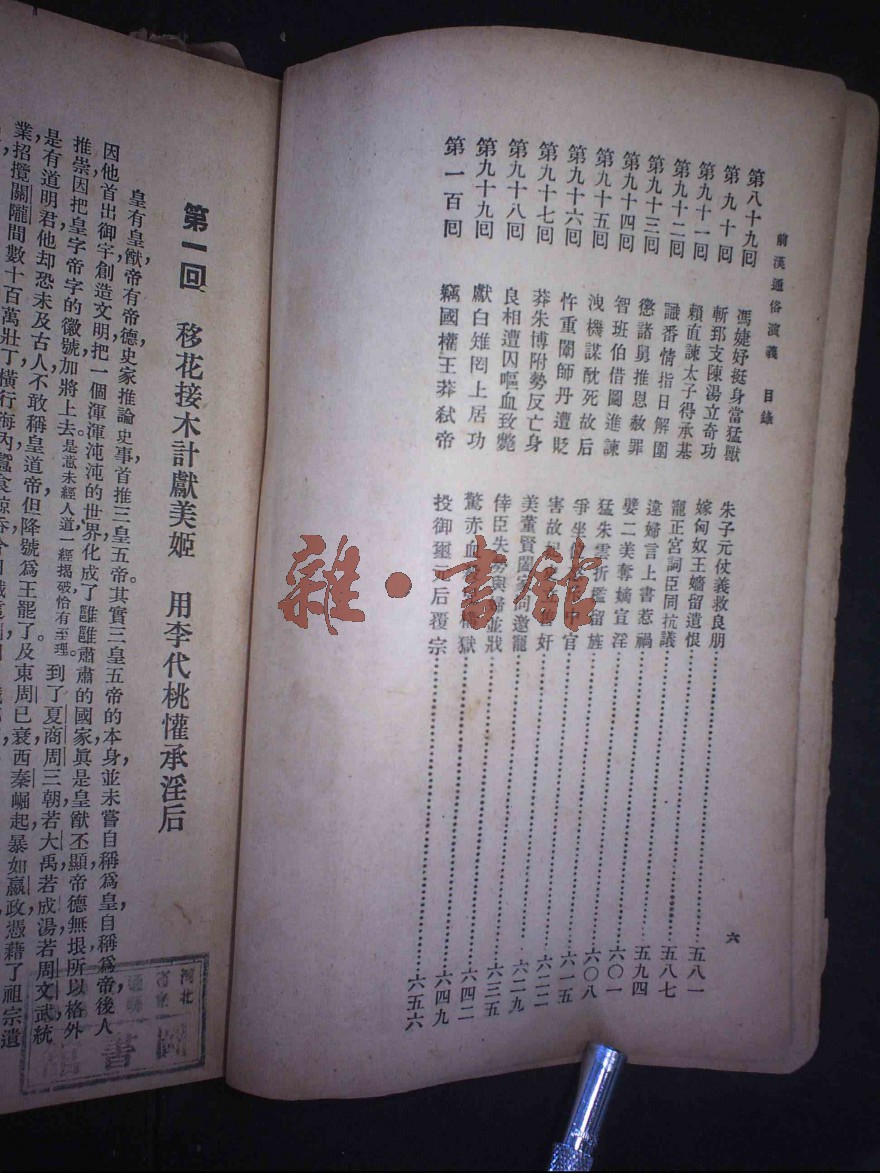 前漢通俗演義　目錄
第八十九回　馮婕妤挺身當猛獸　朱子元仗義救良朋……五八一
第九十回　斬郅支陳湯立奇功　嫁匈奴王嬙留遺恨……五八七
第九十一回　賴直諫太子得承基　寵正宮詞臣同抗議……五九四
第九十二回　識番情指日解圍　違婦言上書惹禍……六〇一
第九十三回　懲諸舅推恩赦罪　嬖二美奪嫡宣淫……六〇八
第九十四回　智班伯借圖進諫　猛朱雲折檻留旌……六一五
第九十五回　洩機謀酖死故后　爭坐中官……六二二
第九十六回　忤重闈師丹遭貶　害故奸……六二九
第九十七回　莽朱博附勢反亡身　美董賢闔家同邀寵……六三五
第九十八回　良相遭囚嘔血致斃　倖臣失勢與婦並戕……六四二
第九十九回　獻白雉罔上居功　驚赤血獄……六四九
第一百回　竊國權王莽弒帝　投御璽元后覆宗……六五六
六
雜·書館
第一回　移花接木計獻美姬　用李代桃懽承淫后
皇有皇猷，帝有帝德，史家推論史事，首推三皇五帝。其實三皇五帝的本身，並未嘗自稱爲皇，自稱爲帝，後人
因他首出御宇，創造文明，把一個渾渾沌沌的世界，化成了雝雝肅肅的國家，眞是皇猷丕顯，帝德無垠，所以格外
推崇，因把皇字帝字的徽號，加將上去。是意未經人道，一經揭破，恰有至理。到了夏商周三朝，若大禹，若成湯，若周文武，統
是有道明君，他却恐未及古人，不敢稱皇道帝，但降號爲王罷了。及東周已衰，西秦崛起，暴如嬴政，憑藉了祖宗遺
業，招攬關隴間數十百萬壯丁，橫行海內，蠶食鯨吞
河北
圖書館